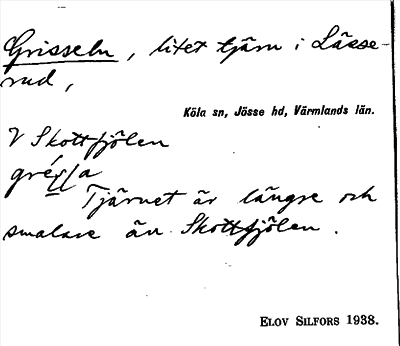 Grisseln, litet tjärn i Lässe-
rud,
Köla sn, Jösse hd, Värmlands län.
V Skottfjölen
Tjärnet är längre och
smalare än Skottfjölen.
ELOV SILFORS 1938.